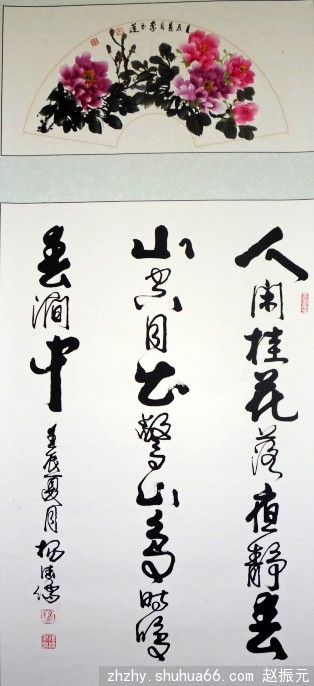 人闲桂花落夜静春
山空月出驚山鳥時鳴
春澗中
壬辰夏月 楊
zhzhy.shuhua66.com 赵振元